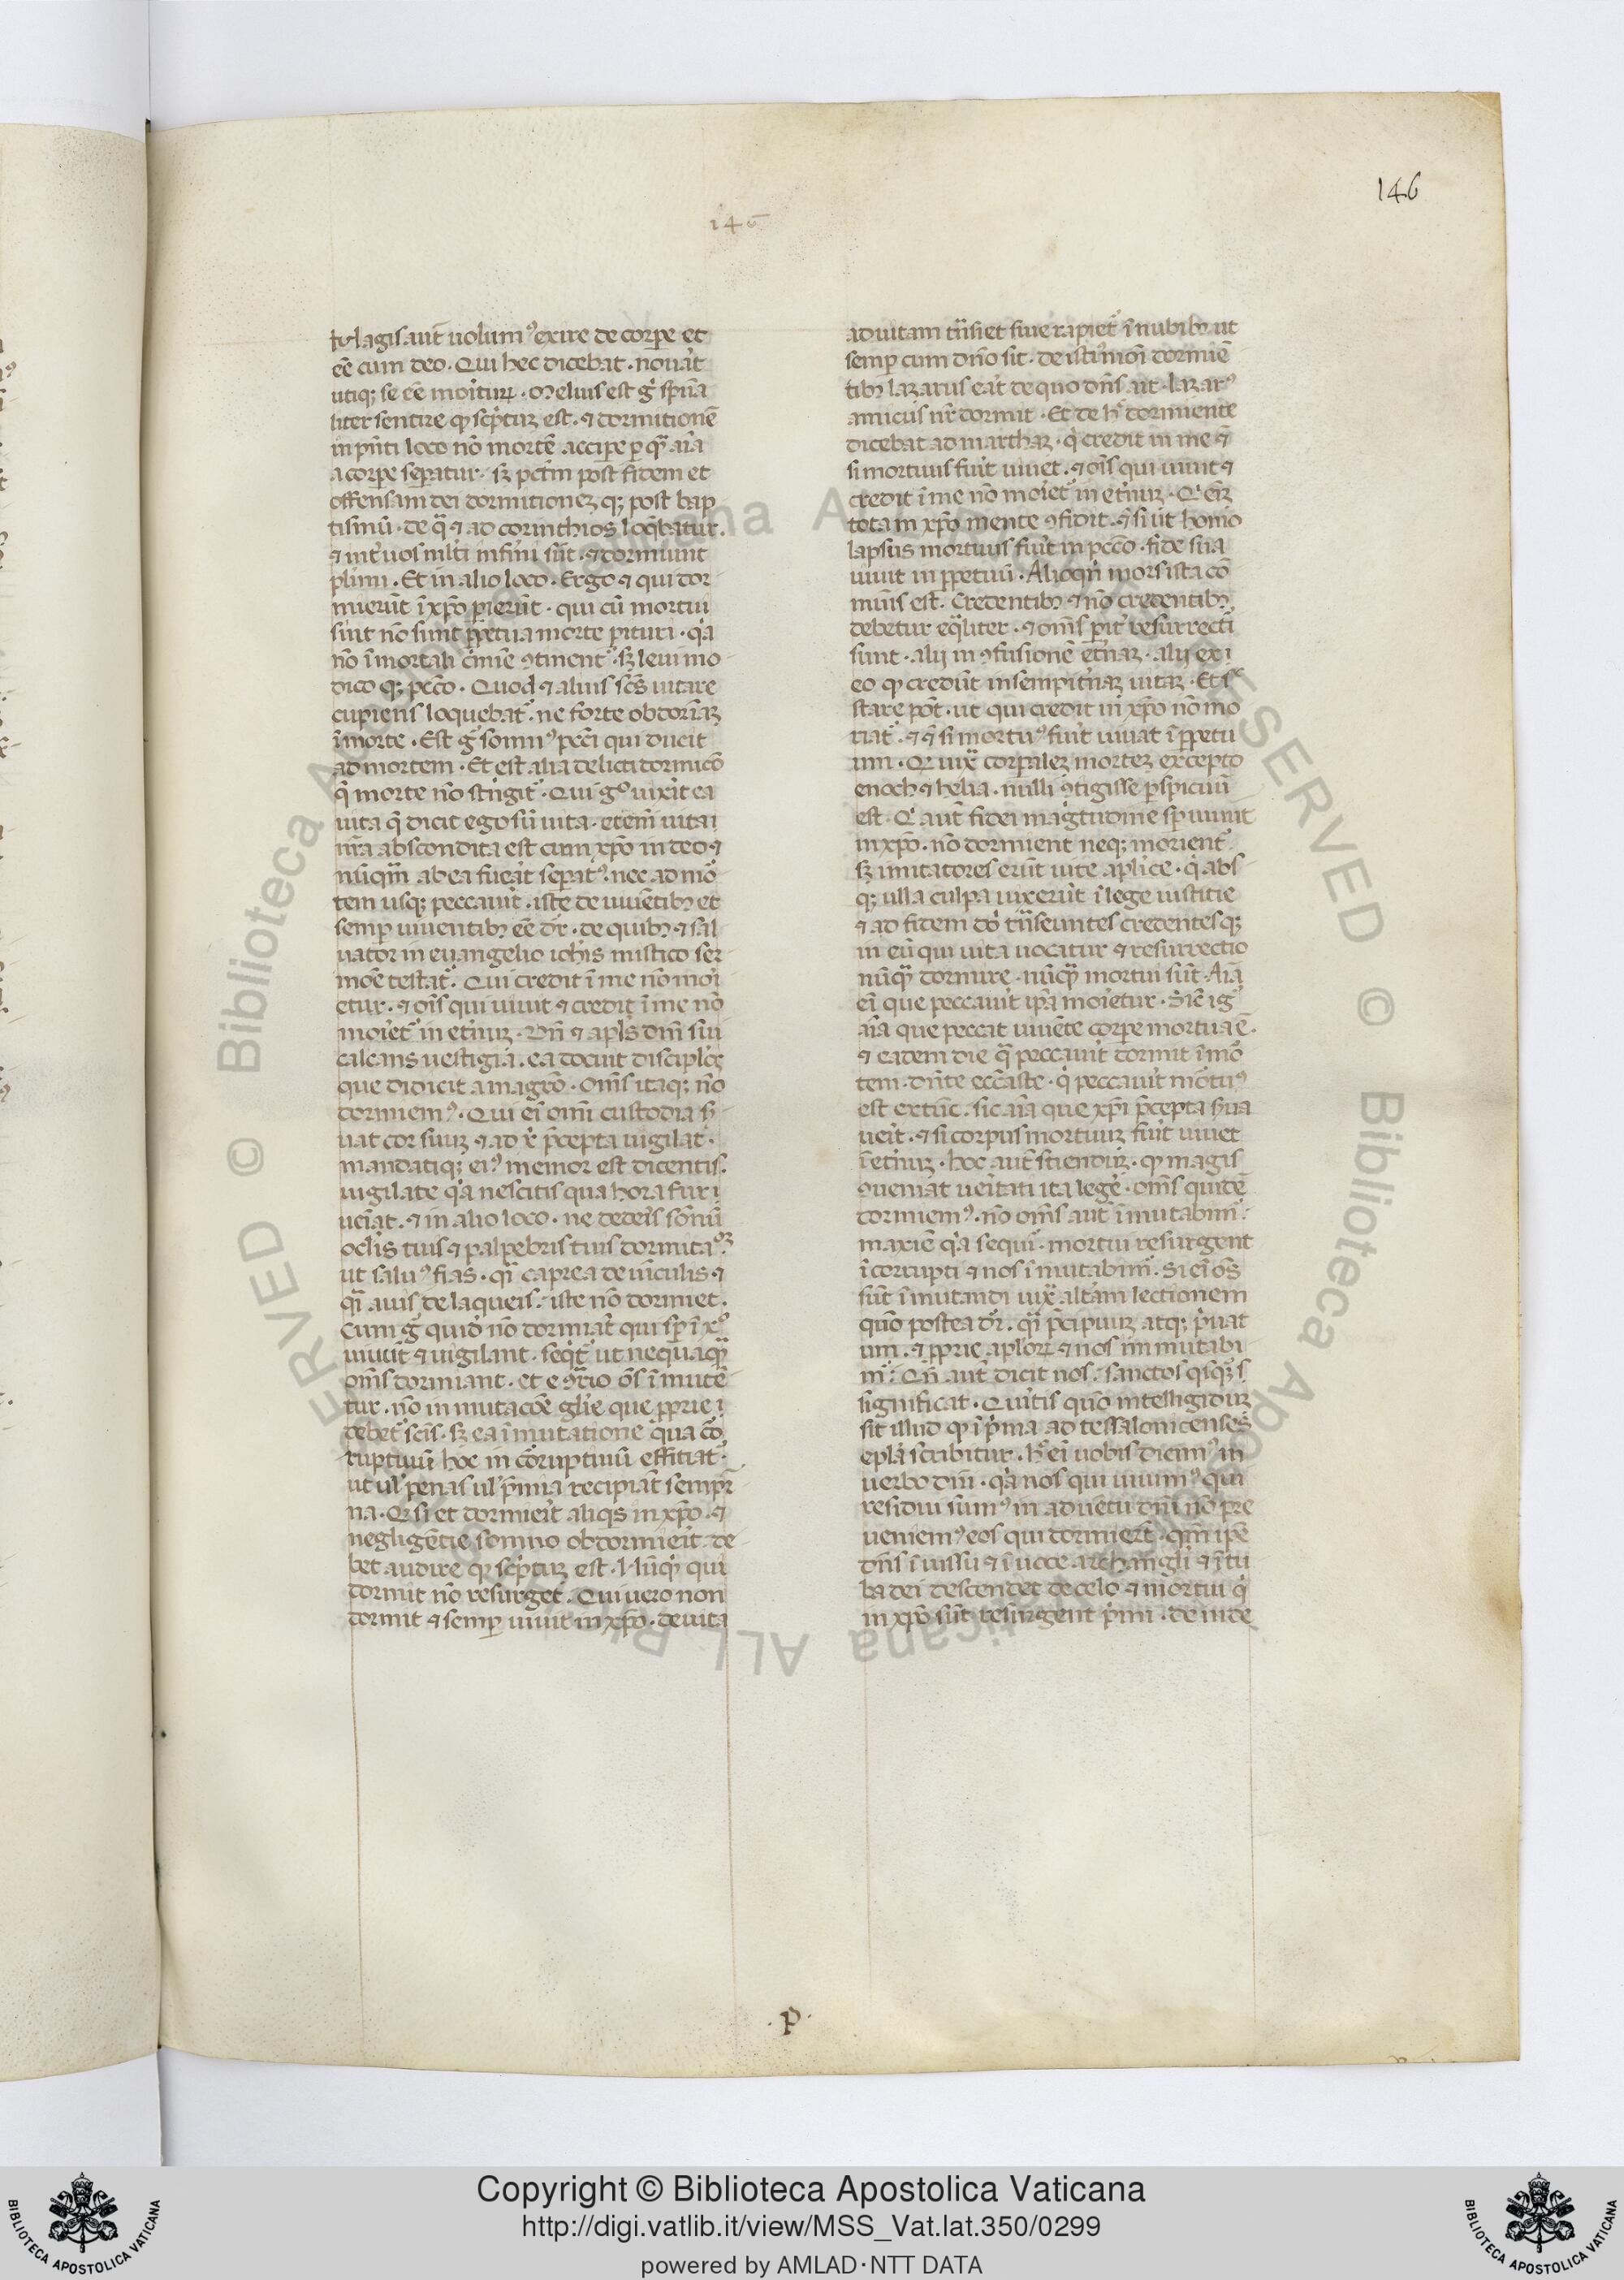 146
146
magis aut̄ uolumꝰ exire de corpe et
eē cum deo . Qui hec dicebat . nouat
utiqꝫ se eē moriturꝝ . Melius est gͥ spūa
liter sentire qꝙ scͥptuꝫ est . ⁊ dormitionē
in pn̄ti loco nō mortē accipe ꝑ qᷓ aīa
a corpe sepatur . sꝫ pctm̄ post fidem et
offensam dei dormitioneꝫ qꝫ post bap
tismū . de qᷓ ⁊ ad corinthios loqͥbatur .
⁊ int̓ uos mlti infirmi sūt . ⁊ dormiunt
plimi . Et in alio loco . Ergo ⁊ qui dor
mierūt ī xp̄o pierūt . qui cū mortui
sint nō sunt ꝑpetua morte pituri . qͥa
nō ī mortali cͥmīe ꝯtinentᷣ . sꝫ leui mo
dico qꝫ pcc̄o . Quod ⁊ alius sc̄s uitare
cupiens loquebatᷣ . ne forte obdormīaꝫ
ī morte . Est gͥ somnꝰ pcc̄i qui ducit
ad mortem . Et est alia delicti dormicō
q̄ morte nō stringitᷣ . Qui gͦ uixͥit ea
uita q̄ dicit ego sū uita . etem̄ uita
nr̄a abscondita est cum xp̄o in deo ⁊
nūqᷓm ab ea fueāt sepatꝰ . nec ad mo᷑
tem usqꝫ peccauit . iste de uiuētibꝫ et
semp uiuentibꝫ eē dr̄ . de quibꝫ ⁊ sal
uator in euangelio ioh̄is mistico ser
moē testatᷣ . Qui credit ī me nō mori
etur . ⁊ oīs qui uiuit ⁊ credit ī me nō
morietᷣ in et̓nuꝫ . Dn̄ ⁊ apl̄s dnī sui
calcans uestigia . ea docuit disciplōs
que didicit a magr̄o . Om̄s itaqꝫ nō
dormiemꝰ . Qui eī om̄i custodia sͬ
uat cor suuꝫ ⁊ ad x̄ p̄cepta uigilat .
mandatiqꝫ eiꝰ memor est dicentis .
uigilate qͥa nescitis qua hora fur
ueīat . ⁊ in alio loco . ne dederis sōnū
oclis tuis ⁊ palpebris tuis dormitaꝰꝫ
ut saluꝰ fias . qͣi caprea de uīculis ⁊
qͣi auis de laqueis . iste nō dormiet .
Cum gͥ quid nō dormiat qui sp ī xͦ
uiuūt ⁊ uigilant . seqͥtᷣ ut nequaqᷓ
om̄s dormiant . et e ꝯtͣio ōs ī mutē
tur . nō in mutacōe glīe que ꝓprie
debetᷣ scīs . sꝫ ea ī mutatione qua co᷑
ruptiuū hoc in co᷑ruptiuū effitiatᷣ .
ut ul̄ penas ul̄ p̄mia recipiāt sempit̓
na . Qꝛ si et dormierit aliqͥs in xp̄o . ⁊
negligētie somno obdormierit de
bet audire qꝙ scͥptuꝫ est . Nūqͥd qui
dormit nō resurget . Qui uero non
dormit ⁊ semp uiuit in xp̄o . de uita
ad uitam trāsiet siue rapietᷣ ī nubibꝫ ut
semp cum dn̄o sit . de isti᷑moī dormiē
tibꝫ lazarus erat de quo dn̄s ait . lazarꝰ
amicus nr̄ dormit . Et de hͦ dormiente
dicebat ad marthaꝫ . qͥ credit in me ⁊
si mortuus fuīt uiuet . ⁊ oīs qui uiuit ⁊
credit ī me nō morietᷣ in et̓nuꝫ . Qͥ eīꝫ
tota in xp̄o mente ꝯfidit . ⁊ si ut homo
lapsus mortuus fuīt in pcc̄o . fide sua
uiuit in ꝑpetuū . Alioqn̄ mors ista co᷑
munis est . Credentibꝫ ⁊ nō credentibꝫ
debetur eqͣliter . ⁊ om̄s pit̓ resurrecti
sunt . alij in ꝯfusionē et̓naꝫ . alij ex
eo qꝙ credūt in sempit̓naꝫ uitaꝫ . Et sͥc
stare pōt . ut qui credit in xp̄o nō mo
riatᷣ . ⁊ q̄ si mortuꝰ fuīt uiuat ī ꝑpetu
um . Qꝛ uix corpaleꝫ morteꝫ excepto
enoch ⁊ helia . nulli ꝯtigisse ꝑspicuū
est . Qͥ aut̄ fidei magͥtudine sp uiuūt
in xp̄o . nō dormient neqꝫ morientᷣ .
sꝫ imitatores erūt uite apl̄ice . qͥ abs
qꝫ ulla culpa uixerūt ī lege iustitie
⁊ ad fidem dn̄i trāseuntes credentesqꝫ
in eū qui uita uocatur ⁊ resurrectio
nūqᷓ dormire . nūqᷓ mortui sūt . Aīa
eī que peccauit ip̄a morietur . Sic igᷣ
aīa que peccat uiuēte corpe mortua ē .
⁊ eadem die qᷓ peccauit dormit ī mo᷑
tem . dicn̄te ecc̄iaste . qͥ peccauit mortuꝰ
est extūc . sic aīa que xp̄i p̄cepta sͬua
ueīt . ⁊ si corpus mortuuꝫ fuīt uiuet
ī et̓nuꝫ . hoc aut̄ sciendūꝫ . qꝙ magis
ꝯueniat ueritati ita leg̓e . om̄s quidē
dormiemꝰ . nō om̄s aut̄ ī mutabimᷣ :
maxīe qͥa sequitᷣ . mortui resurgent
ī corrupti ⁊ nos ī mutabimᷣ . Si eī ōs
sūt ī mutandi iux̄ alt̓am lectionem
quō postea dr̄ . qͣi p̄cipuuꝫ atqꝫ pͥuat
um . ⁊ ꝓprie apl̄oꝝ ⁊ nos im mutabi
mᷣ : Qn̄ aut̄ dicit nos . sanctos qͥsqꝫ
significat . Queritis quō intelligenduꝫ
sit illud qꝙ ī pͥma ad tessalonicenses
epl̄a scribitur . hͦ eī uobis dicimꝰ in
uerbo dnī . qͥa nos qui uiuimꝰ qui
residui sumꝰ in aduētu dnī nō pre
ueniemꝰ eos qui dormierūt . qm̄ ip̄e
dn̄s ī iussu ⁊ ī uoce archangl̄i ⁊ ī tu
ba dei descendet de celo ⁊ mortui qͥ
in xp̄o sūt resurgent pͥmi . deinde
. P .
Copyright © Biblioteca Apostolica Vaticana
http://digi.vatlib.it/view/MSS_Vat.lat.350/0299
powered by AMLAD·NTT DATA